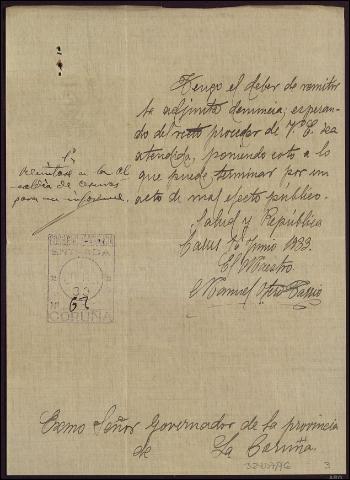 Tengo el deber de remitir
la adjunta denuncia, esperan-
do del recto proceder de V. E. sea
atendida, poniendo coto a lo
que puede terminar por un
acto de mal efecto público.
Salud y República
1º Junio 1933.
El Maestro.
Manuel Otero
Remítase a la Al
caldía de
para su informe.
ENTRADA
62
CORUÑA
Exmo Señor Governador de la provincia
de La Coruña.
3